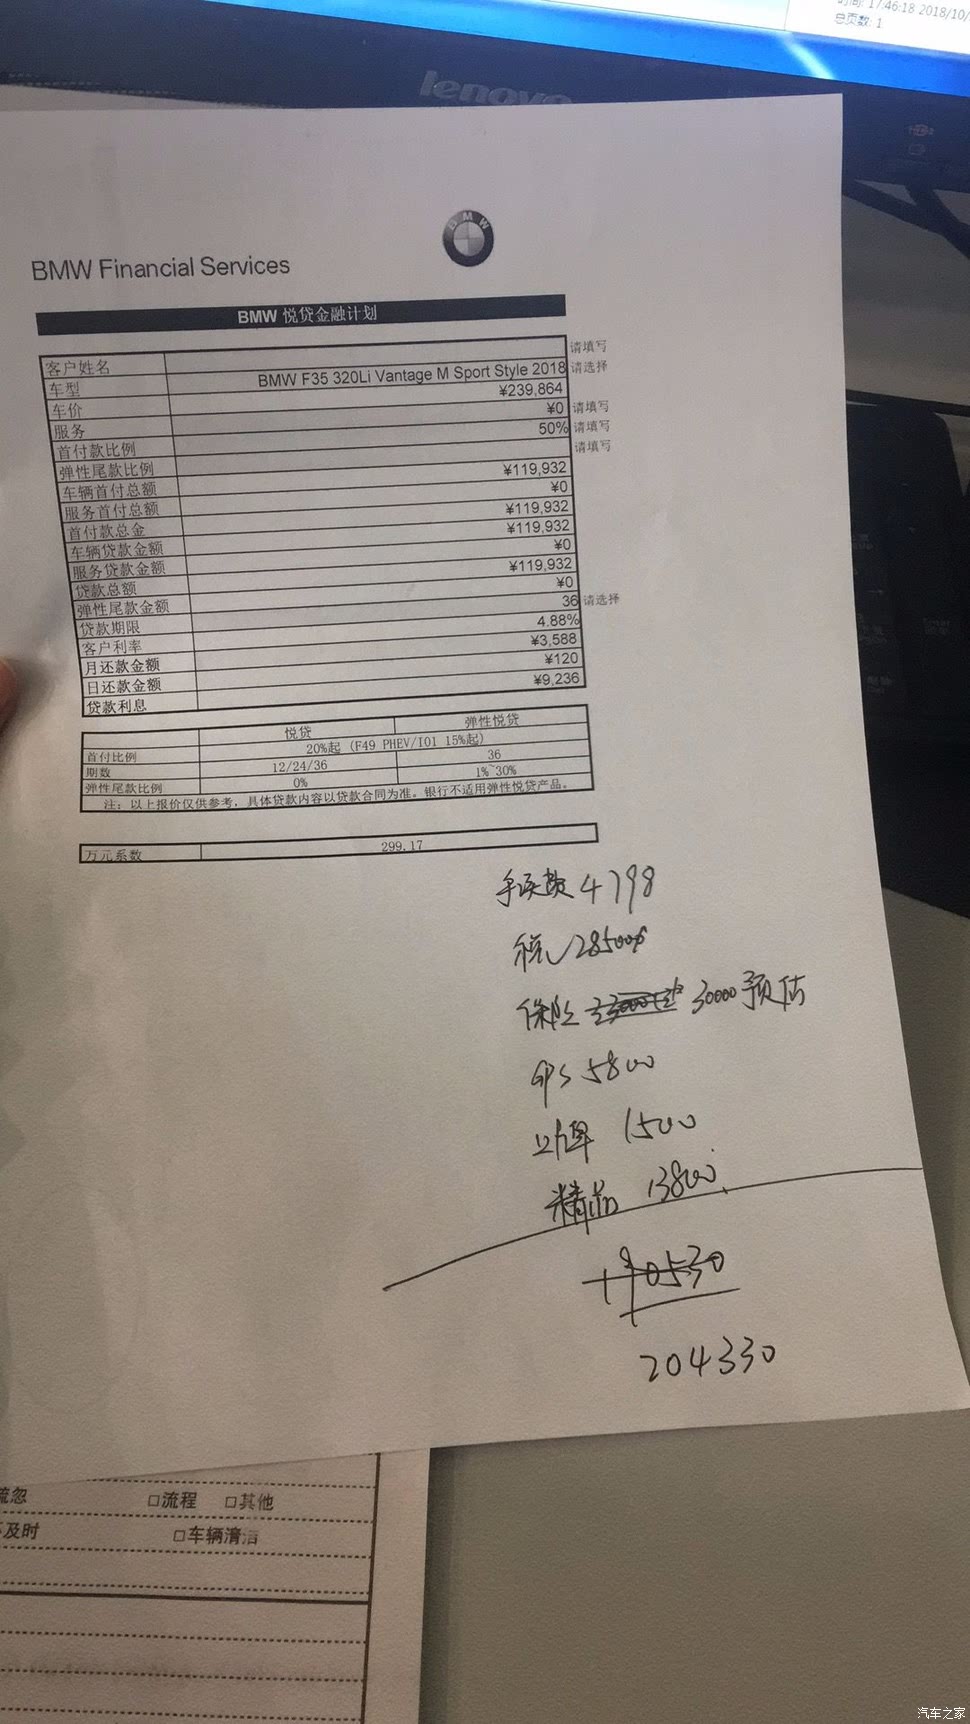 时间: 17:46:18 2018/10/
总页数: 1
lenovo
BMW
BMW Financial Services
BMW 悦贷金融计划
客户姓名 请填写
车型 BMW F35 320Li Vantage M Sport Style 2018 请选择
车价 ¥239,864
服务 ¥0 请填写
首付款比例 50% 请填写
弹性尾款比例 请填写
车辆首付总额 ¥119,932
服务首付总额 ¥0
首付款总金 ¥119,932
车辆贷款金额 ¥119,932
服务贷款金额 ¥0
贷款总额 ¥119,932
弹性尾款金额 ¥0
贷款期限 36 请选择
客户利率 4.88%
月还款金额 ¥3,588
日还款金额 ¥120
贷款利息 ¥9,236
悦贷 弹性悦贷
首付比例 20%起 (F49 PHEV/I01 15%起)
期数 12/24/36 36
弹性尾款比例 0% 1%~30%
注：以上报价仅供参考，具体贷款内容以贷款合同为准。银行不适用弹性悦贷产品。
万元系数 299.17
手续费 4798
税 28500
保险 30000 预估
GPS 5800
上牌 1500
精品 13800
190530
204330
疏忽 □流程 □其他
不及时 □车辆清洁
汽车之家